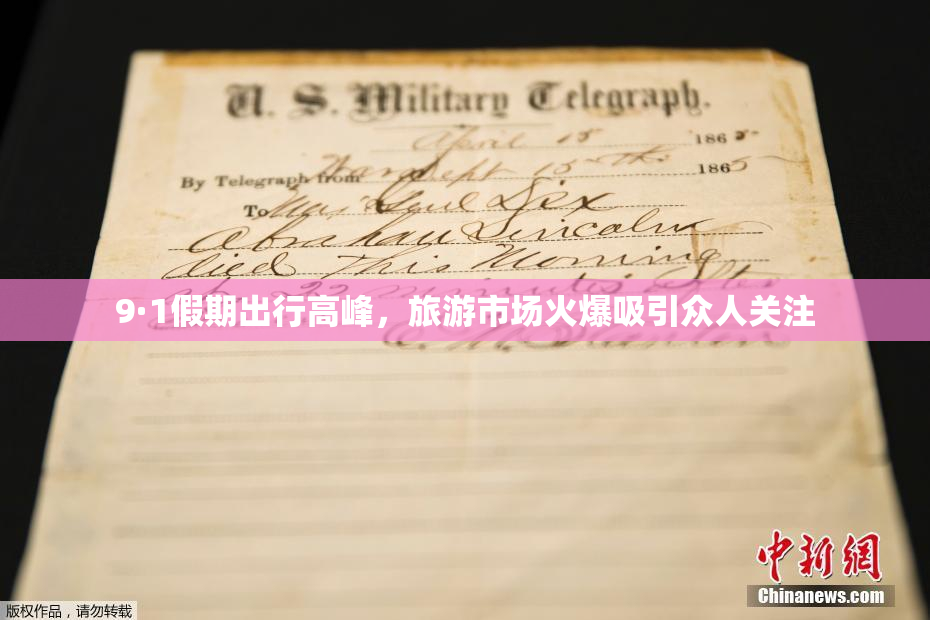 U. S. Military Telegraph.
April 15 1865
By Telegraph from War Dept 15th 1865
To Maj Genl Dix
Abraham Lincoln
died This Morning
at 22 minutes after
9·1假期出行高峰，旅游市场火爆吸引众人关注
E. M. Stanton
中新网
Chinanews.com
版权作品，请勿转载